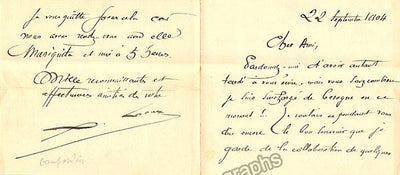 22 Septembre 1904
Cher Ami,
Pardonnez-moi d'avoir autant
tardé à vous écrire, mais vous savez combien
je suis surchargé de besogne en ce
moment! Je voulais cependant vous
dire encore le bon souvenir que je
garde de la collaboration de quelques
Je vous quitte
nous avons rendez-vous avec elle
Mariquita et moi à 5 heures
reconnaissante et
affectueuse amitiés de votre